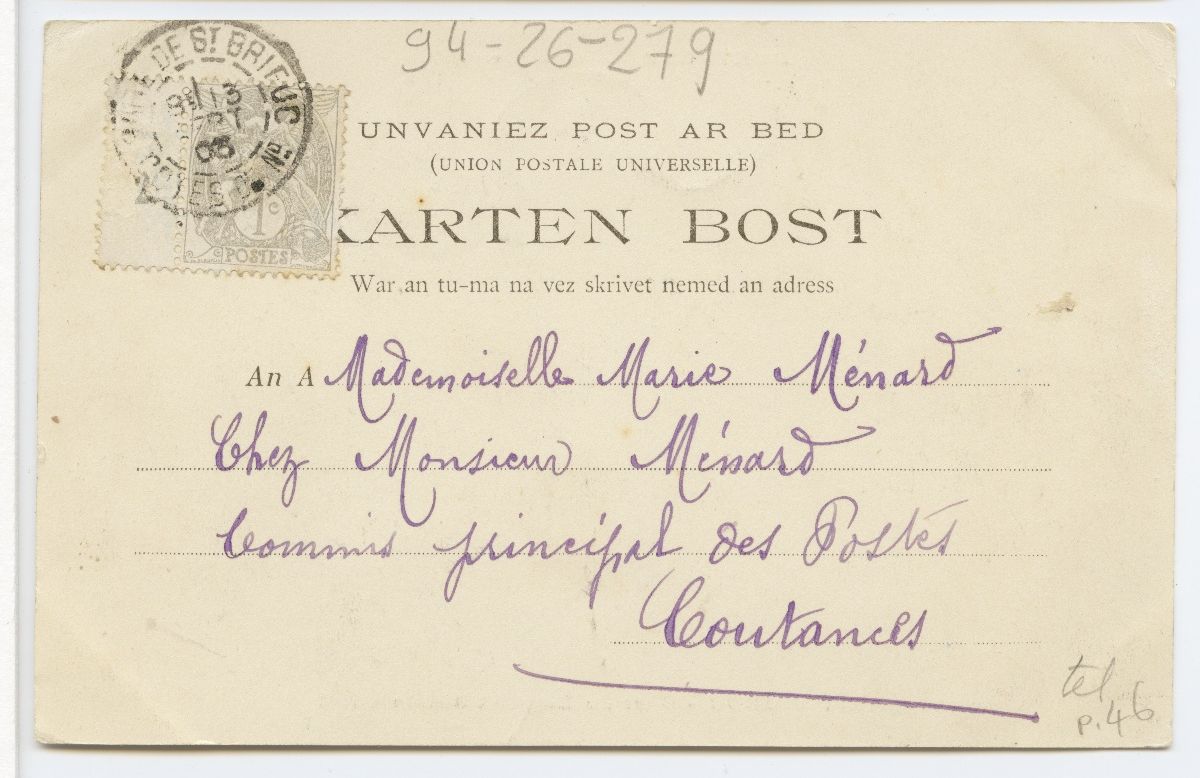 94-26-279
GARE DE ST BRIEUC
13
03
COTES D. Nd
1c
POSTES
UNVANIEZ POST AR BED
(UNION POSTALE UNIVERSELLE)
KARTEN BOST
War an tu-ma na vez skrivet nemed an adress
An A Mademoiselle Marie Ménard
Chez Monsieur Ménard
Commis principal des Postes
Coutances
tel
p.46